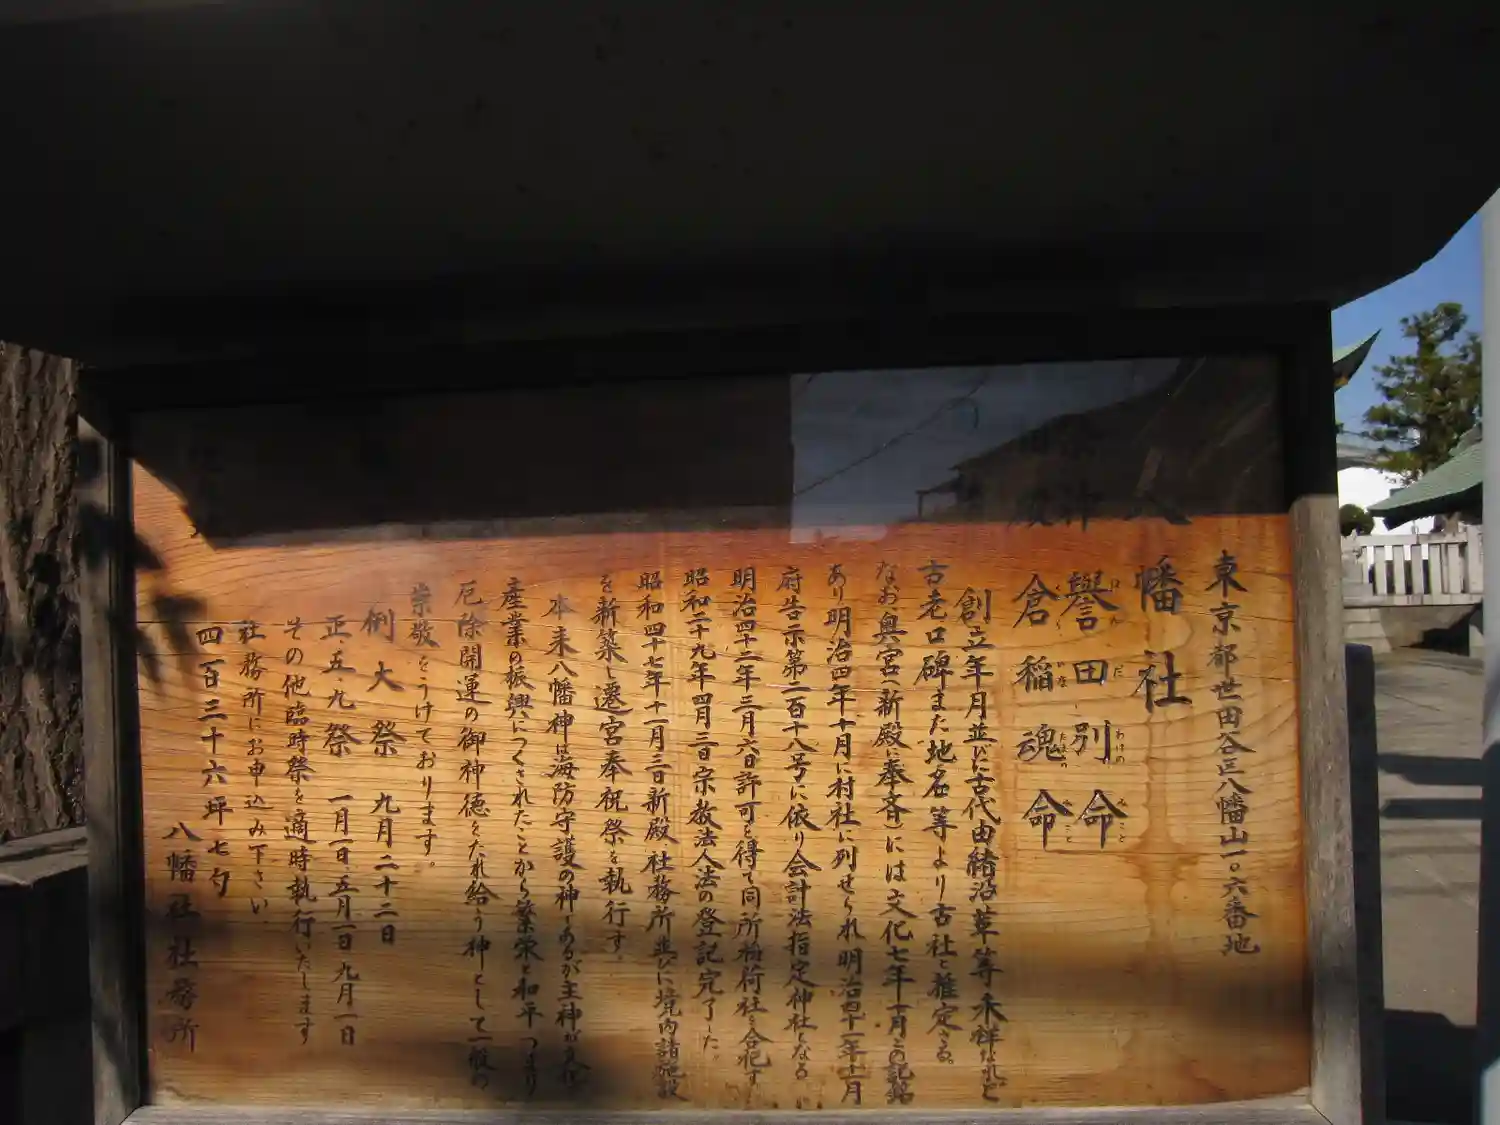 東京都世田谷区八幡山一〇六番地
八幡社
祭神 譽田別命
ほんだわけのみこと
倉稲魂命
くらいなたまのみこと
創立年月並びに古代由緒沿革等未詳なれど
古老口碑また地名等より古社と推定さる。
なお奥宮(新殿に奉斉)には文化七年十月の記銘
あり明治四年十月に村社に列せられ明治四十一年十一月
府告示第二百十八号に依り会計法指定神社となる
明治四十二年三月六日許可を得て同所稲荷社を合祀す
昭和二十九年四月三日宗教法人法の登記完了した。
昭和四十七年十一月三日新殿社務所並びに境内諸施設
を新築し遷宮奉祝祭を執行す。
本来八幡神は海防守護の神であるが主神が文化
産業の振興につくされたことから繁栄と和平つまり
厄除開運の御神徳をたれ給う神として一般の
崇敬をうけております。
例大祭 九月二十二日
正、五、九祭 一月一日、五月一日、九月一日
その他臨時祭を適時執行いたします
社務所にお申込み下さい
四百三十六坪七勺
八幡社社務所